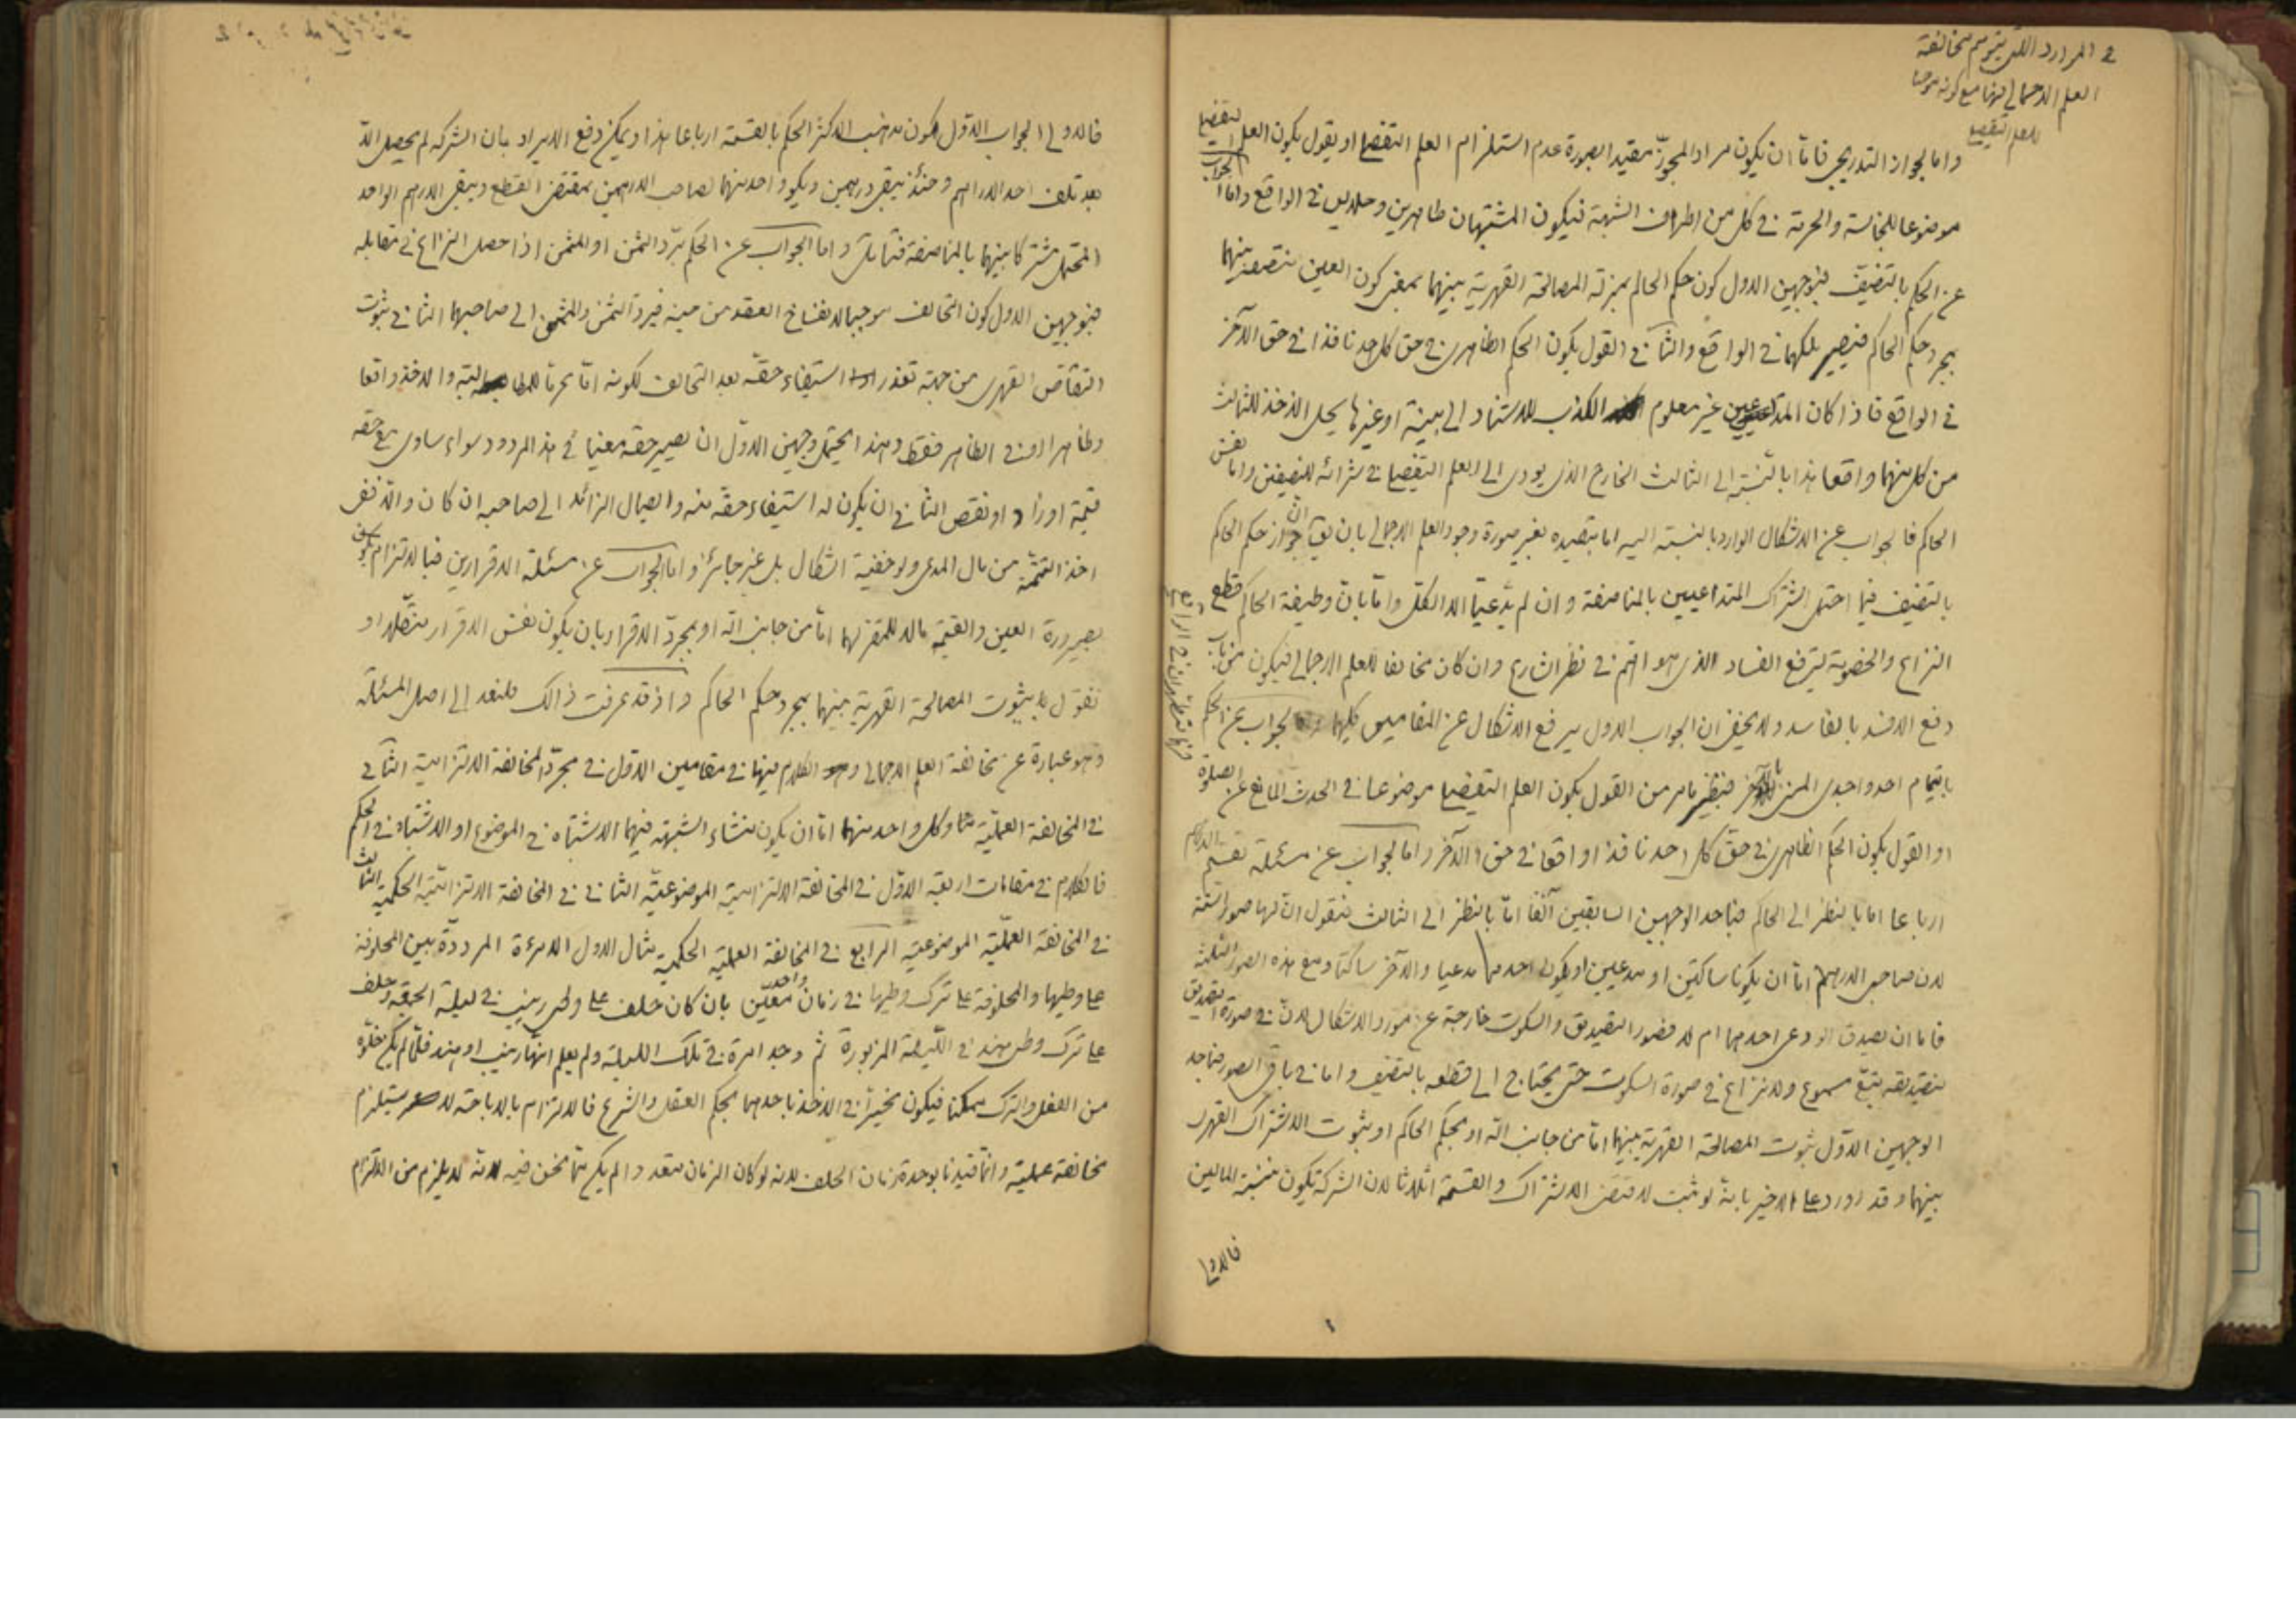 في الموارد اللتي يتوهم مخالفة
العلم الاجمالي فيها مع كونه موجبا
للعلم التفصيلي
واما الجواز التدريجي فامّا ان يكون مراد المجوّز مقيدا بصورة عدم استلزام العلم التفصيلي او يقول بكون العلم التفصيلي
موضوعا للنجاسة والحرمة في كل من اطراف الشبهة فيكون المشتبهان طاهرين وحلالين في الواقع واما الجواب
عن الحكم بالتنصيف فبوجهين الاول كون حكم الحاكم بمنزلة المصالحة القهرية بينهما بمعنى كون العين منتصف بينهما
بمجرد حكم الحاكم فيصير ملكهما في الواقع والثاني القول بكون الحكم الظاهري في حق كل احد نافذا في حق الآخر
في الواقع فاذا كان المتداعيين غير معلوم الكذب للاستناد الى بينة او غيرها يحل الاخذ للثالث
من كل منهما واقعا هذا بالنسبة الى الثالث الخارج الذي يودي الى العلم التفصيلي في شرائه للنصفين واما نفس
الحاكم فالجواب عن الاشكال الوارد بالنسبة اليه اما بتقييده بغير صورة وجود العلم الاجمالي بان يقال ان جواز حكم الحاكم
بالتنصيف فيما احتمل اشتراك المتداعيين بالمناصفة وان لم يدّعيا الا الكل وامّا بانّ وظيفة الحاكم قطع
النزاع والخصومة ليرفع الفساد الذي هو اهمّ في نظر الشارع وان كان مخالفا للعلم الاجمالي فيكون من باب
دفع الافسد بالفاسد ولا يخفى ان الجواب الاول يرفع الاشكال عن المقامين كليهما واما الجواب عن الحكم
بايتمام احد واجدي المني بالآخر فنظير ما مر من القول بكون العلم التفصيلي موضوعا في الحدث المانع عن الصلوة
او القول بكون الحكم الظاهري في حق كل احد نافذا واقعا في حق الآخر واما الجواب عن مسئلة تقسيم الدراهم
ارباعا اما بالنظر الى الحاكم فباحد الوجهين السابقين آنفا امّا بالنظر الى الثالث فنقول انّ لها صور ستة
لان صاحبي الدرهم امّا ان يكونا ساكتين او مدعيين او يكون احدهما مدعيا والآخر ساكتا ومع هذه الصور الثلثة
فاما ان يصدق الودعي احدهما ام لا فصور التصديق والسكوت خارجة عن مورد الاشكال لانّ في صورة التصديق
فتصديقه يتبع مسموع ولا نزاع في صورة السكوت حتى يحتاج الى قطعه بالتنصيف واما في باقي الصور فباحد
الوجهين الاوّل ثبوت المصالحة القهرية بينهما امّا من جانب الله او بحكم الحاكم او بثبوت الاشتراك القهري
بينهما وقد اورد على الاخير بانه لو ثبت لاقتضى الاشتراك والقسمة اثلاثا لان الشركة تكون بنسبة المالين
فالاولى
فالاولى الجواب الاوّل لكون مذهب الاكثر الحكم بالقسمة ارباعا هذا ويمكن دفع الايراد بان الشركة لم يحصل الّا
بعد تلف احد الدراهم وحينئذ يبقى درهمين ويكون واحد منهما لصاحب الدرهمين بمقتضى القطع ويبقى الدرهم الواحد
المحتمل مشتركا بينهما بالمناصفة فتامل واما الجواب عن الحكم بردّ الثمن او المثمن اذا حصل النزاع في مقابله
فبوجهين الاول كون التحالف موجبا لانفساخ العقد من حينه فيردّ الثمن والمثمن الى صاحبهما الثاني ثبوت
التقاصّ القهري من جهة تعذر استيفاء حقّه بعد التحالف لكونه امّا محرما للمطالبة والاخذ واقعا
وظاهرا او في الظاهر فقط وهذا يحتمل وجهين الاوّل ان يصير حقه معينا في هذا المردود سواء ساوى مع حقه
قيمة او زاد او نقص الثاني ان يكون له استيفاء حقّه منه وايصال الزائد الى صاحبه ان كان والّا ففي
اخذ التتمّة من مال المدعي ولو خفية اشكال بل غير جائز واما الجواب عن مسئلة الاقرارين فبالالتزام بكون
بصيرورة العين والقيمة مالا للمقر لهما امّا من جانب الله او بمجردّ الاقرار بان يكون نفس الاقرار منقّلا او
نقول بثبوت المصالحة القهرية بينهما بمجرد حكم الحاكم واذ قد عرفت ذالك فلنعد الى اصل المسئلة
وهو عبارة عن مخالفة العلم الاجمالي والكلام فيها في مقامين الاوّل في مجردّ المخالفة الالتزامية الثاني
في المخالفة العمليّة وكل واحد منهما امّا ان يكون منشاء الشبهة فيهما الاشتباه في الموضوع او الاشتباه في الحكم
فالكلام في مقامات اربعة الاوّل في المخالفة الالتزامية الموضوعيّة الثاني في المخالفة الالتزاميّة الحكمية الثالث
في المخالفة العمليّة الموضوعية الرابع في المخالفة العملية الحكمية مثال الاول الامرءة المرددّة بين المحلوفة
على وطيها والمحلوفة على ترك وطيها في زمان واحد معيّن بان كان حلف على وطي زينب في ليلة الجمعة وحلف
على ترك وطي هند في الليلة المزبورة ثم وجد امرة في تلك الليلة ولم يعلم انّها زينب او هند فلمّا لم يكن خلّوه
من الفعل والترك ممكنا فيكون مخيراً في الاخذ باحدهما بحكم العقل والشرع فالالتزام بالاباحة لا يستلزم
مخالفة عملية وانّما قيدنا بوحدة زمان الحلف لانه لو كان الزمان متعددا لم يكن ممّا نحن فيه لانّه لا يلزم من الالتزام